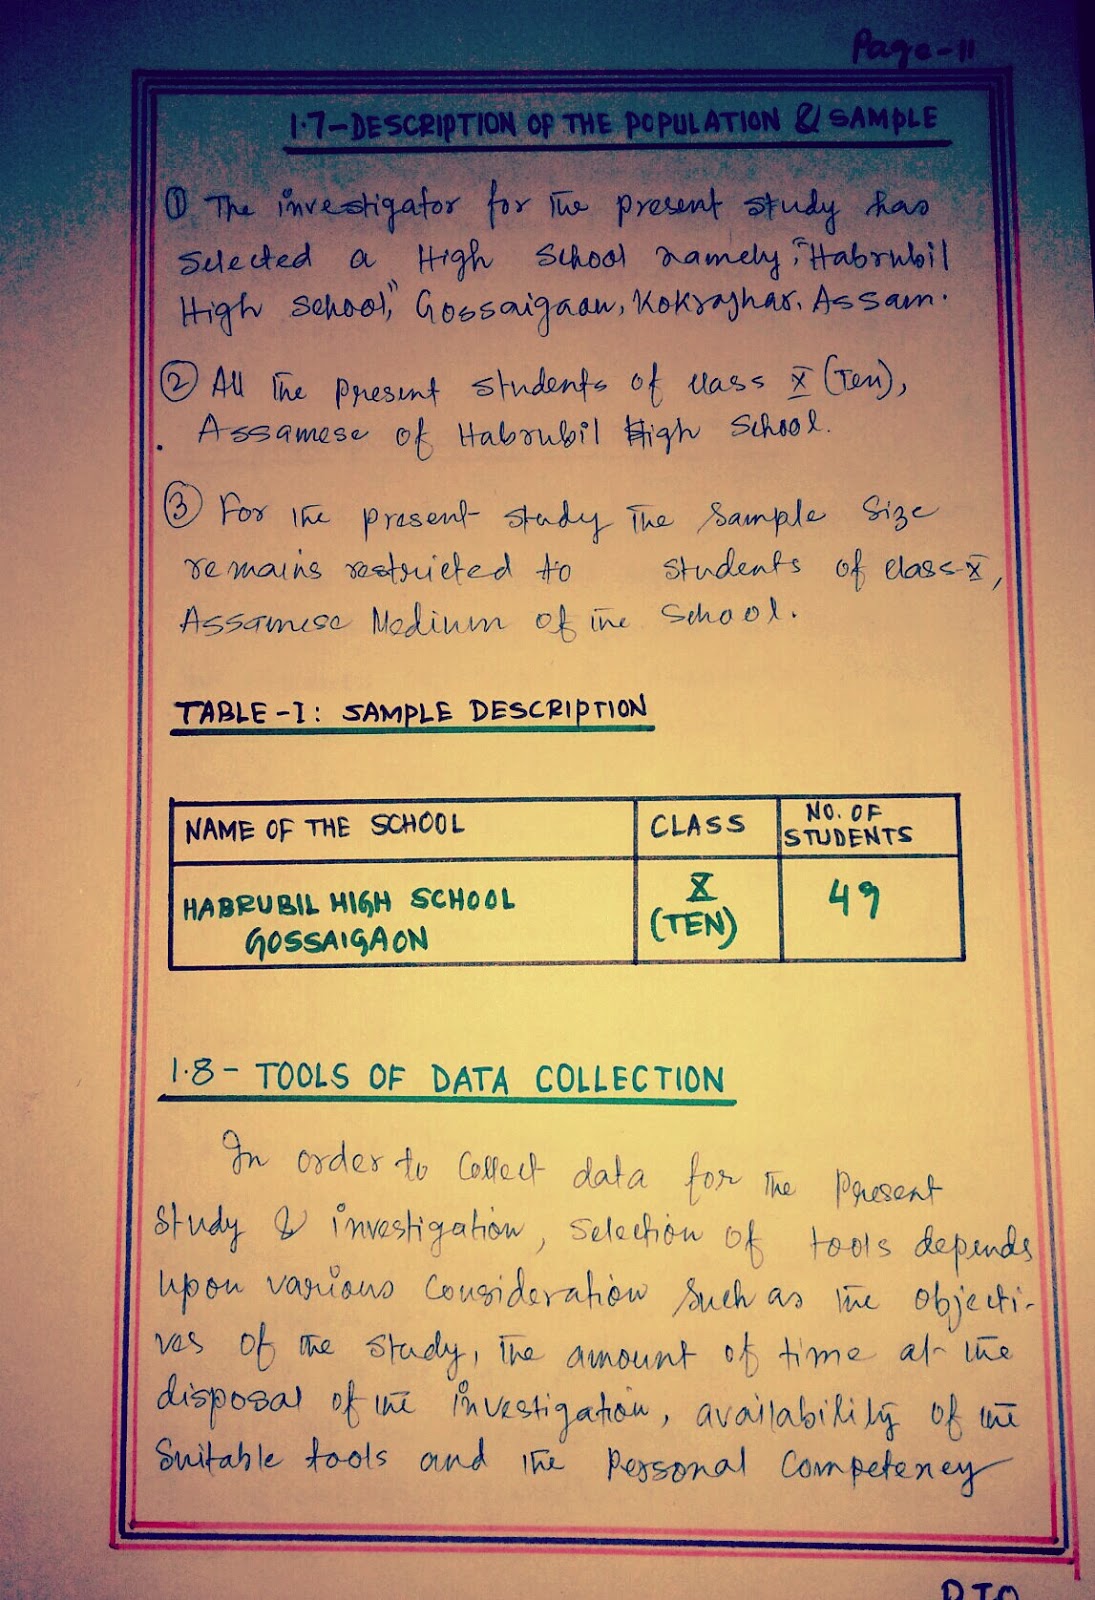 Page-11
1.7-DESCRIPTION OF THE POPULATION & SAMPLE
① The investigator for the present study has
selected a High School namely, "Habrubil
High School", Gossaigaon, Kokrajhar, Assam.
② All the present students of class X (Ten),
Assamese of Habrubil High School.
③ For the present study the sample size
remains restricted to students of class-X,
Assamese Medium of the school.
TABLE-I: SAMPLE DESCRIPTION
NAME OF THE SCHOOL CLASS NO. OF STUDENTS
HABRUBIL HIGH SCHOOL GOSSAIGAON X (TEN) 49
1.8- TOOLS OF DATA COLLECTION
In order to collect data for the present
study & investigation, selection of tools depends
upon various consideration such as the objecti-
ves of the study, the amount of time at the
disposal of the investigation, availability of the
suitable tools and the personal competency
PTO